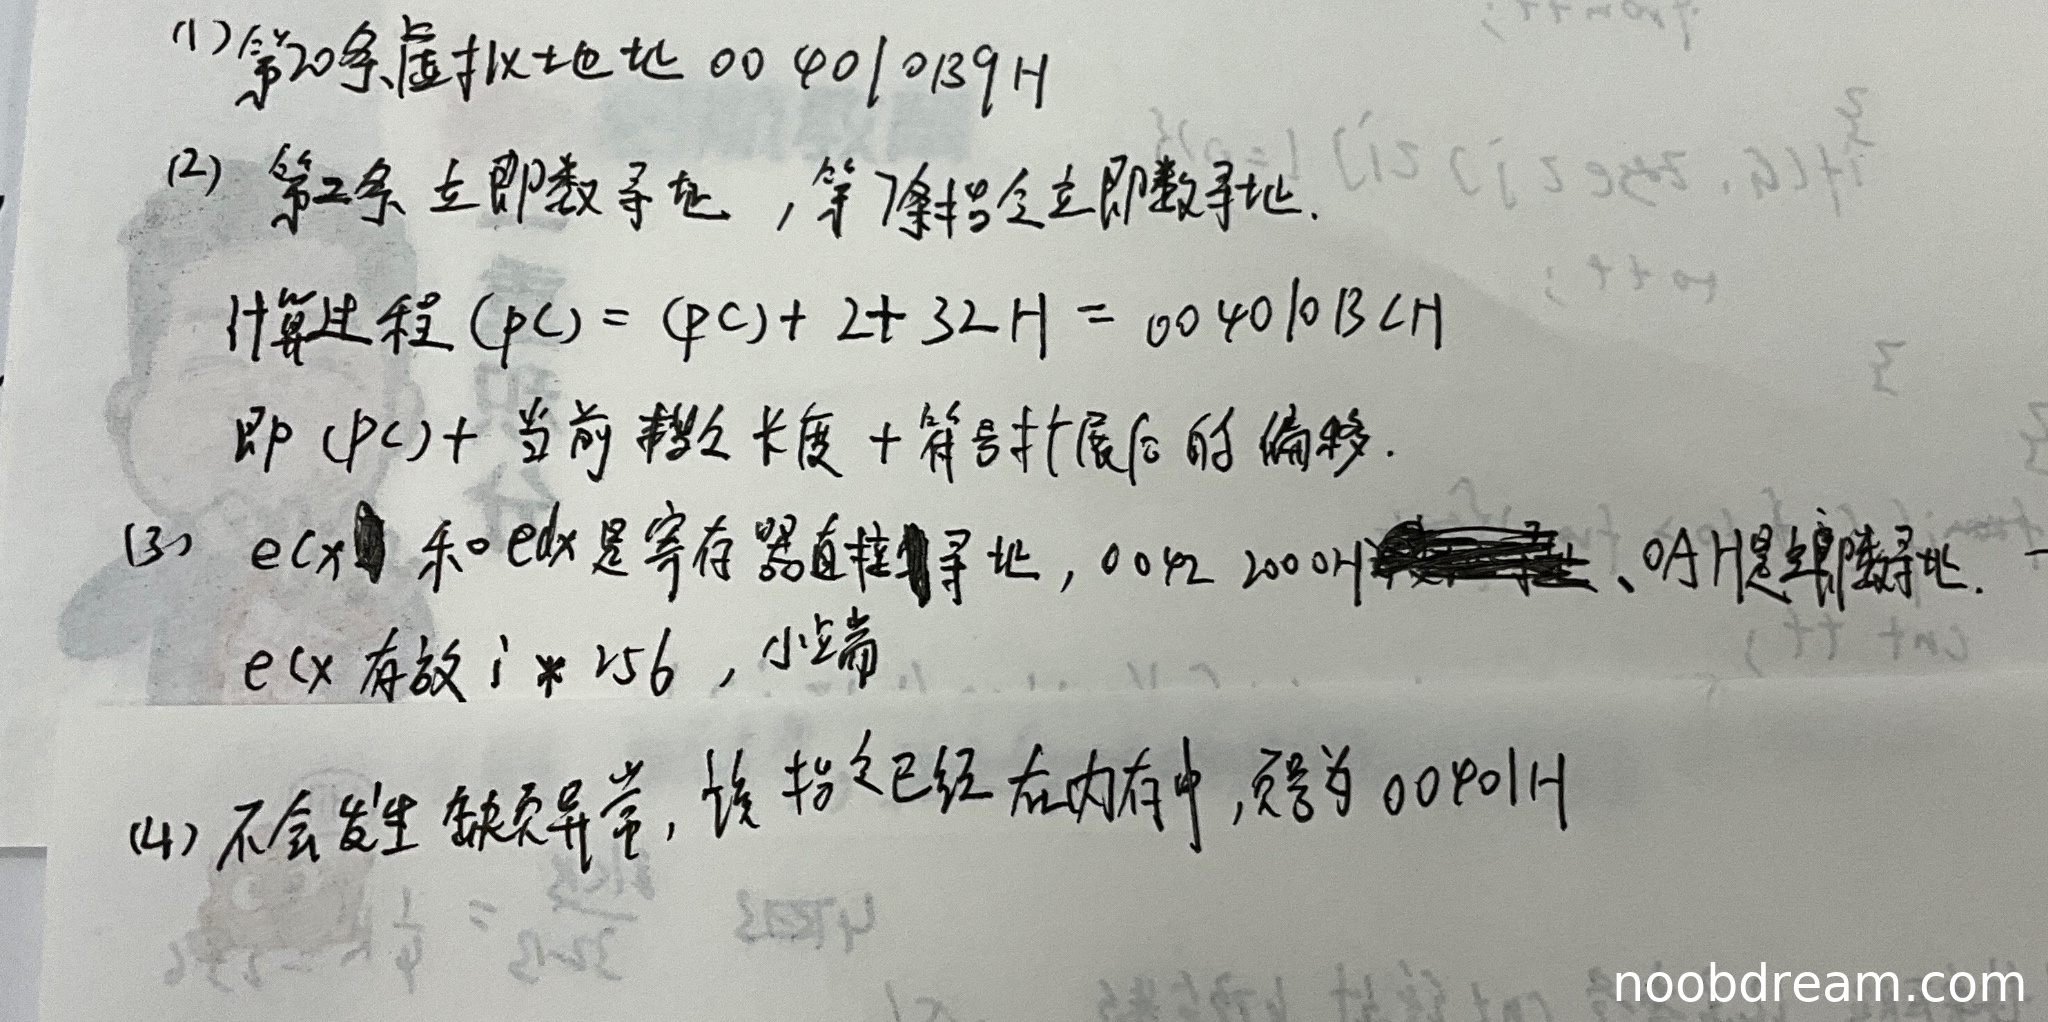 (1) 第20条虚拟地址 004010B9H
(2) 第二条 立即数寻址，第7条指令立即数寻址.
计算过程 (PC) = (PC) + 2 + 32H = 004010BCH
即 (PC) + 当前指令长度 + 符号扩展后的偏移.
(3) ecx 和 edx是寄存器直接寻址，0042 2000H、0AH是立即数寻址.
ecx 存放 i * 256 ，小端
(4) 不会发生缺页异常，该指令已经在内存中，页号为 00401H
noobdream.com